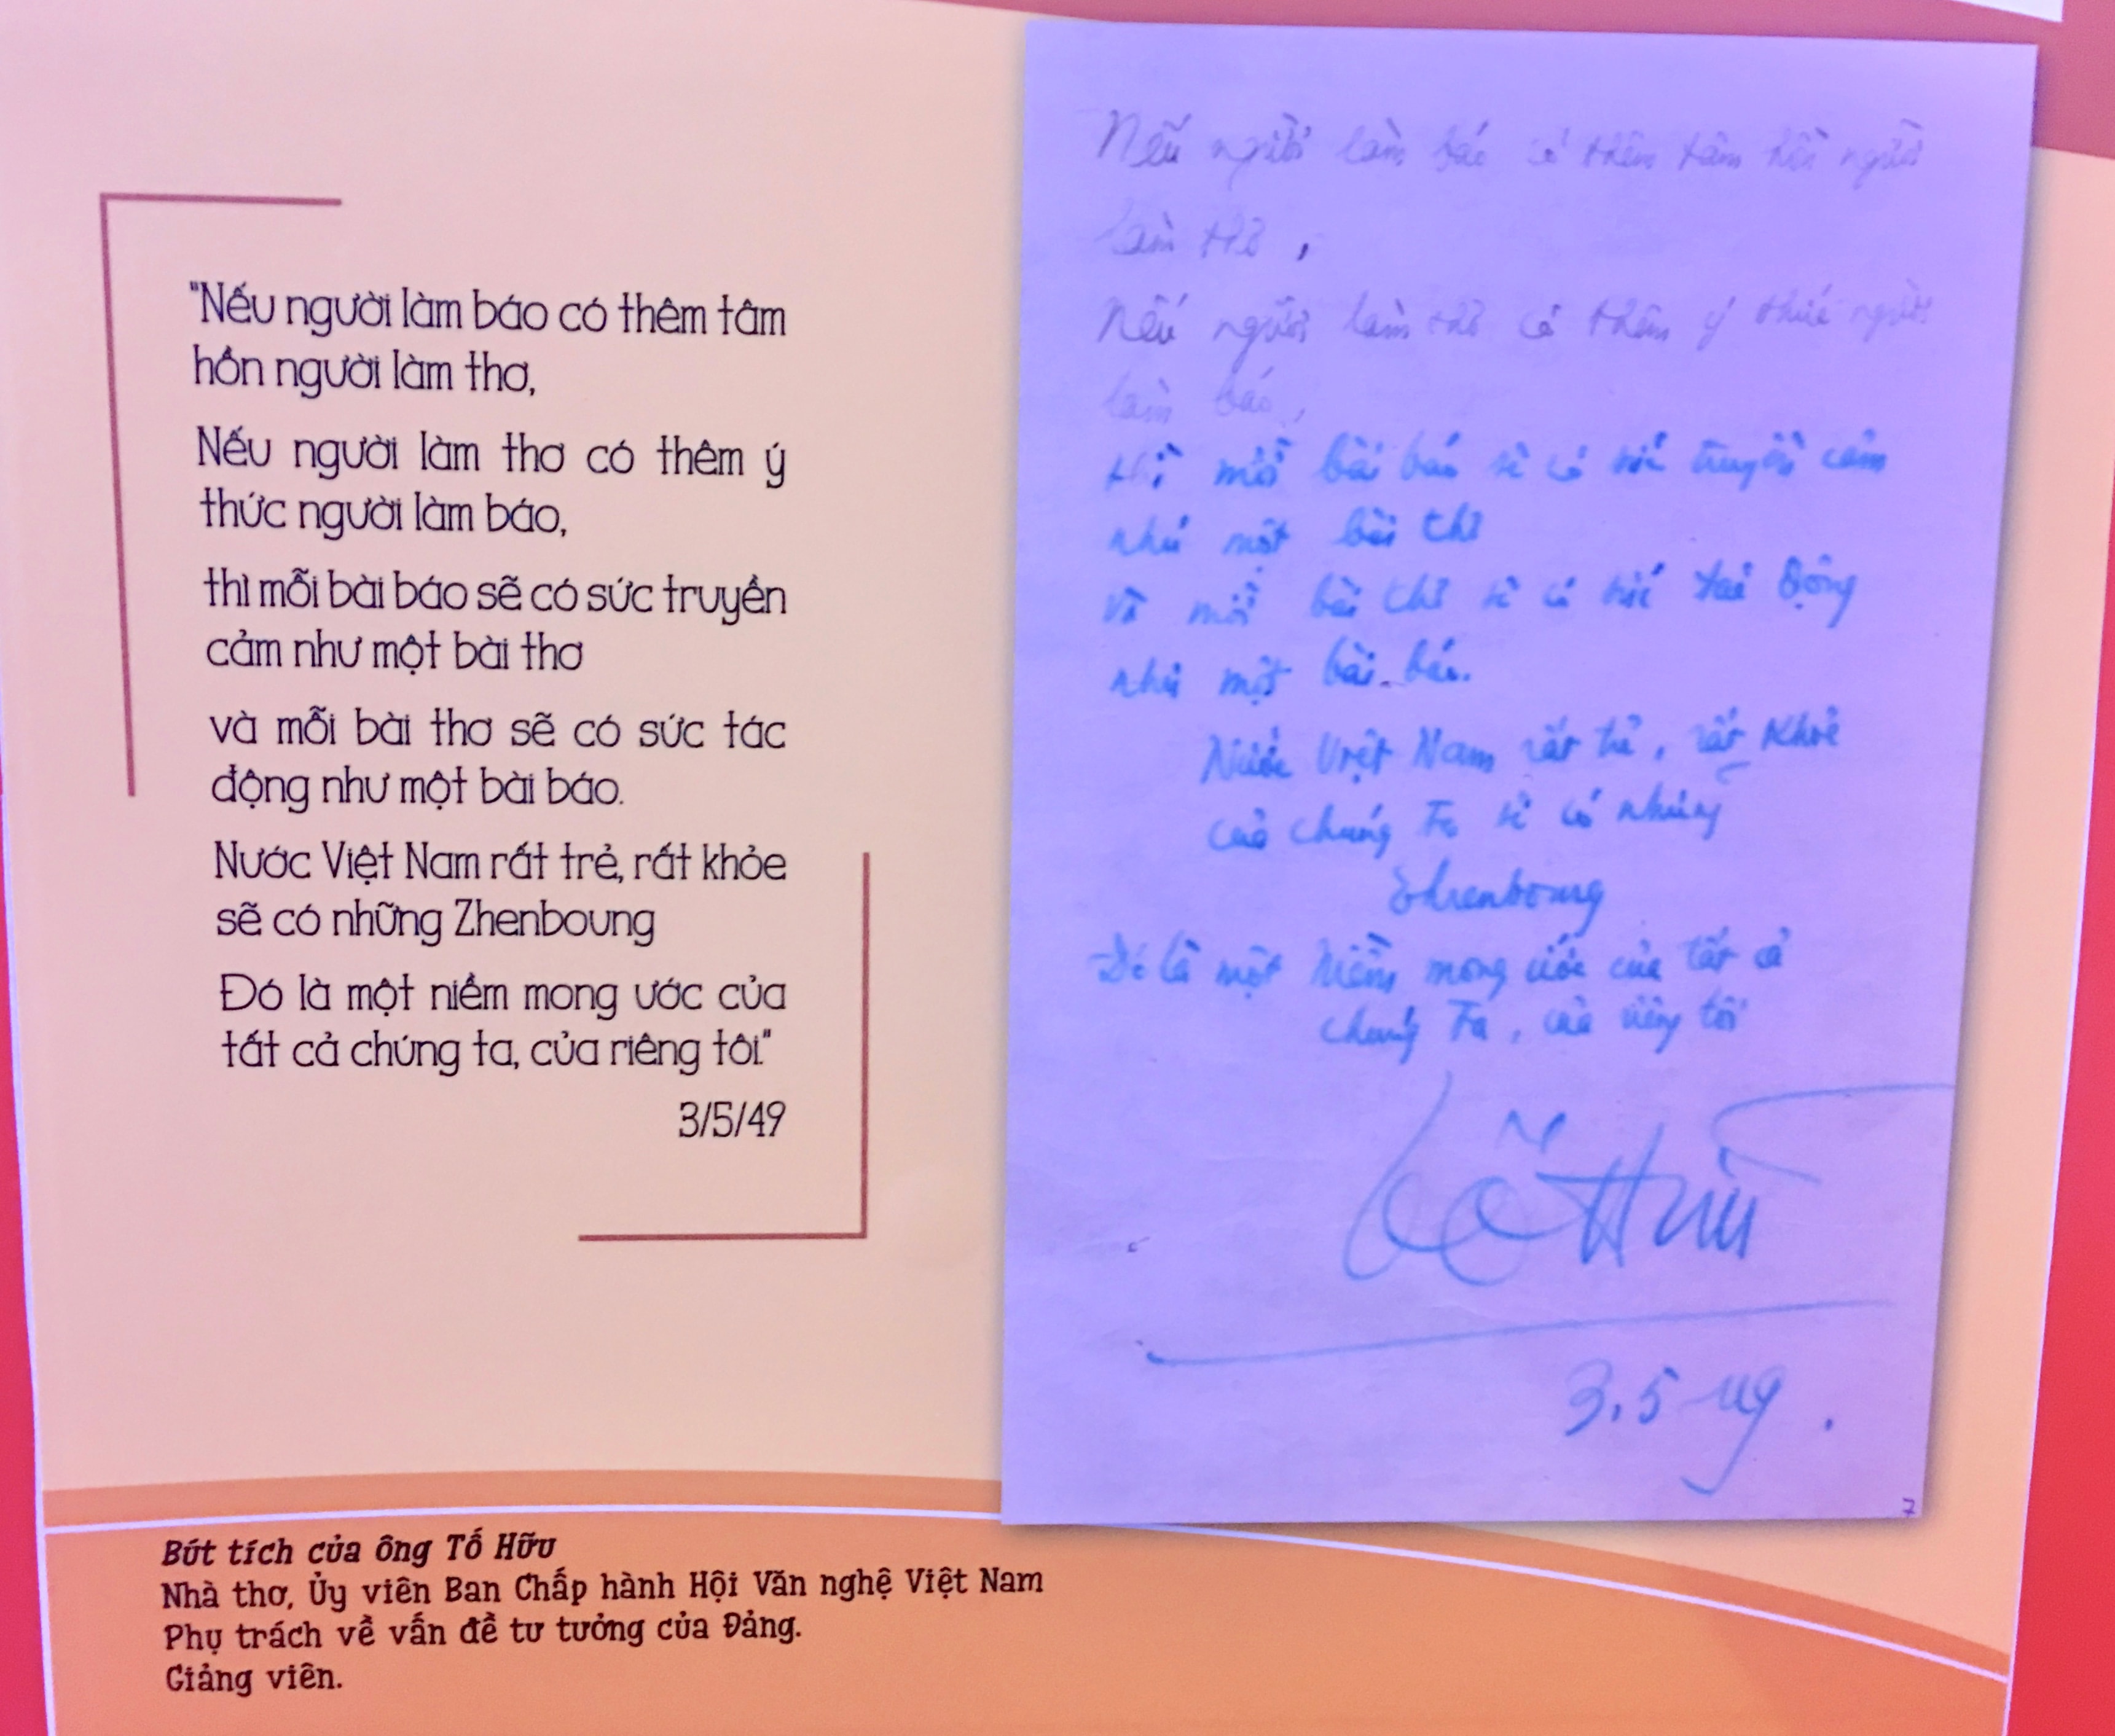 "Nếu người làm báo có thêm tâm
hồn người làm thơ,
Nếu người làm thơ có thêm ý
thức người làm báo,
thì mỗi bài báo sẽ có sức truyền
cảm như một bài thơ
và mỗi bài thơ sẽ có sức tác
động như một bài báo.
Nước Việt Nam rất trẻ, rất khỏe
sẽ có những Zhenboung
Đó là một niềm mong ước của
tất cả chúng ta, của riêng tôi."
3/5/49
Nếu người làm báo có thêm tâm hồn người
làm thơ,
Nếu người làm thơ có thêm ý thức người
làm báo,
thì mỗi bài báo sẽ có sức truyền cảm
như một bài thơ
và mỗi bài thơ sẽ có sức tác động
như một bài báo.
Nước Việt Nam rất trẻ, rất khỏe
của chúng ta sẽ có những
Ehrenbourg
Đó là một niềm mong ước của tất cả
chúng ta, của riêng tôi
Tố Hữu
3.5 49.
7
Bút tích của ông Tố Hữu
Nhà thơ, Ủy viên Ban Chấp hành Hội Văn nghệ Việt Nam
Phụ trách về vấn đề tư tưởng của Đảng.
Giảng viên.